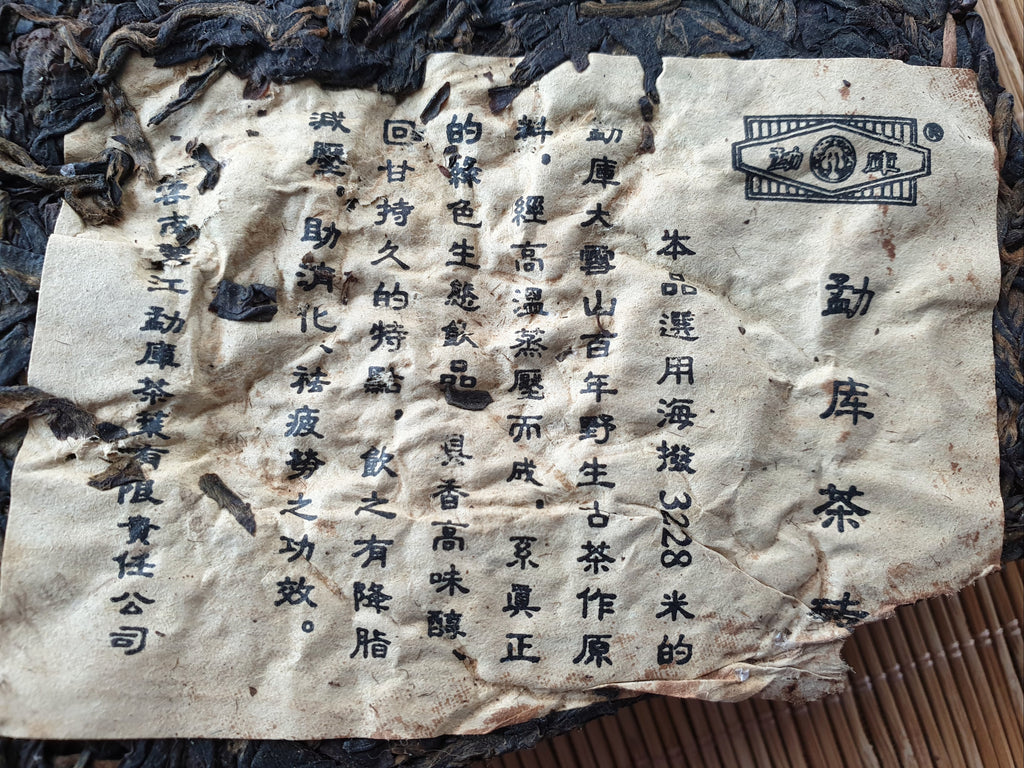 勐庫
®
勐库茶砖
本品選用海撥3228米的
勐庫大雪山百年野生古茶作原
料，經高溫蒸壓而成，系真正
的綠色生態飲品，具香高味醇、
回甘持久的特點，飲之有降脂
减壓，助消化、祛疲勞之功效。
雲南雙江勐庫茶葉有限責任公司